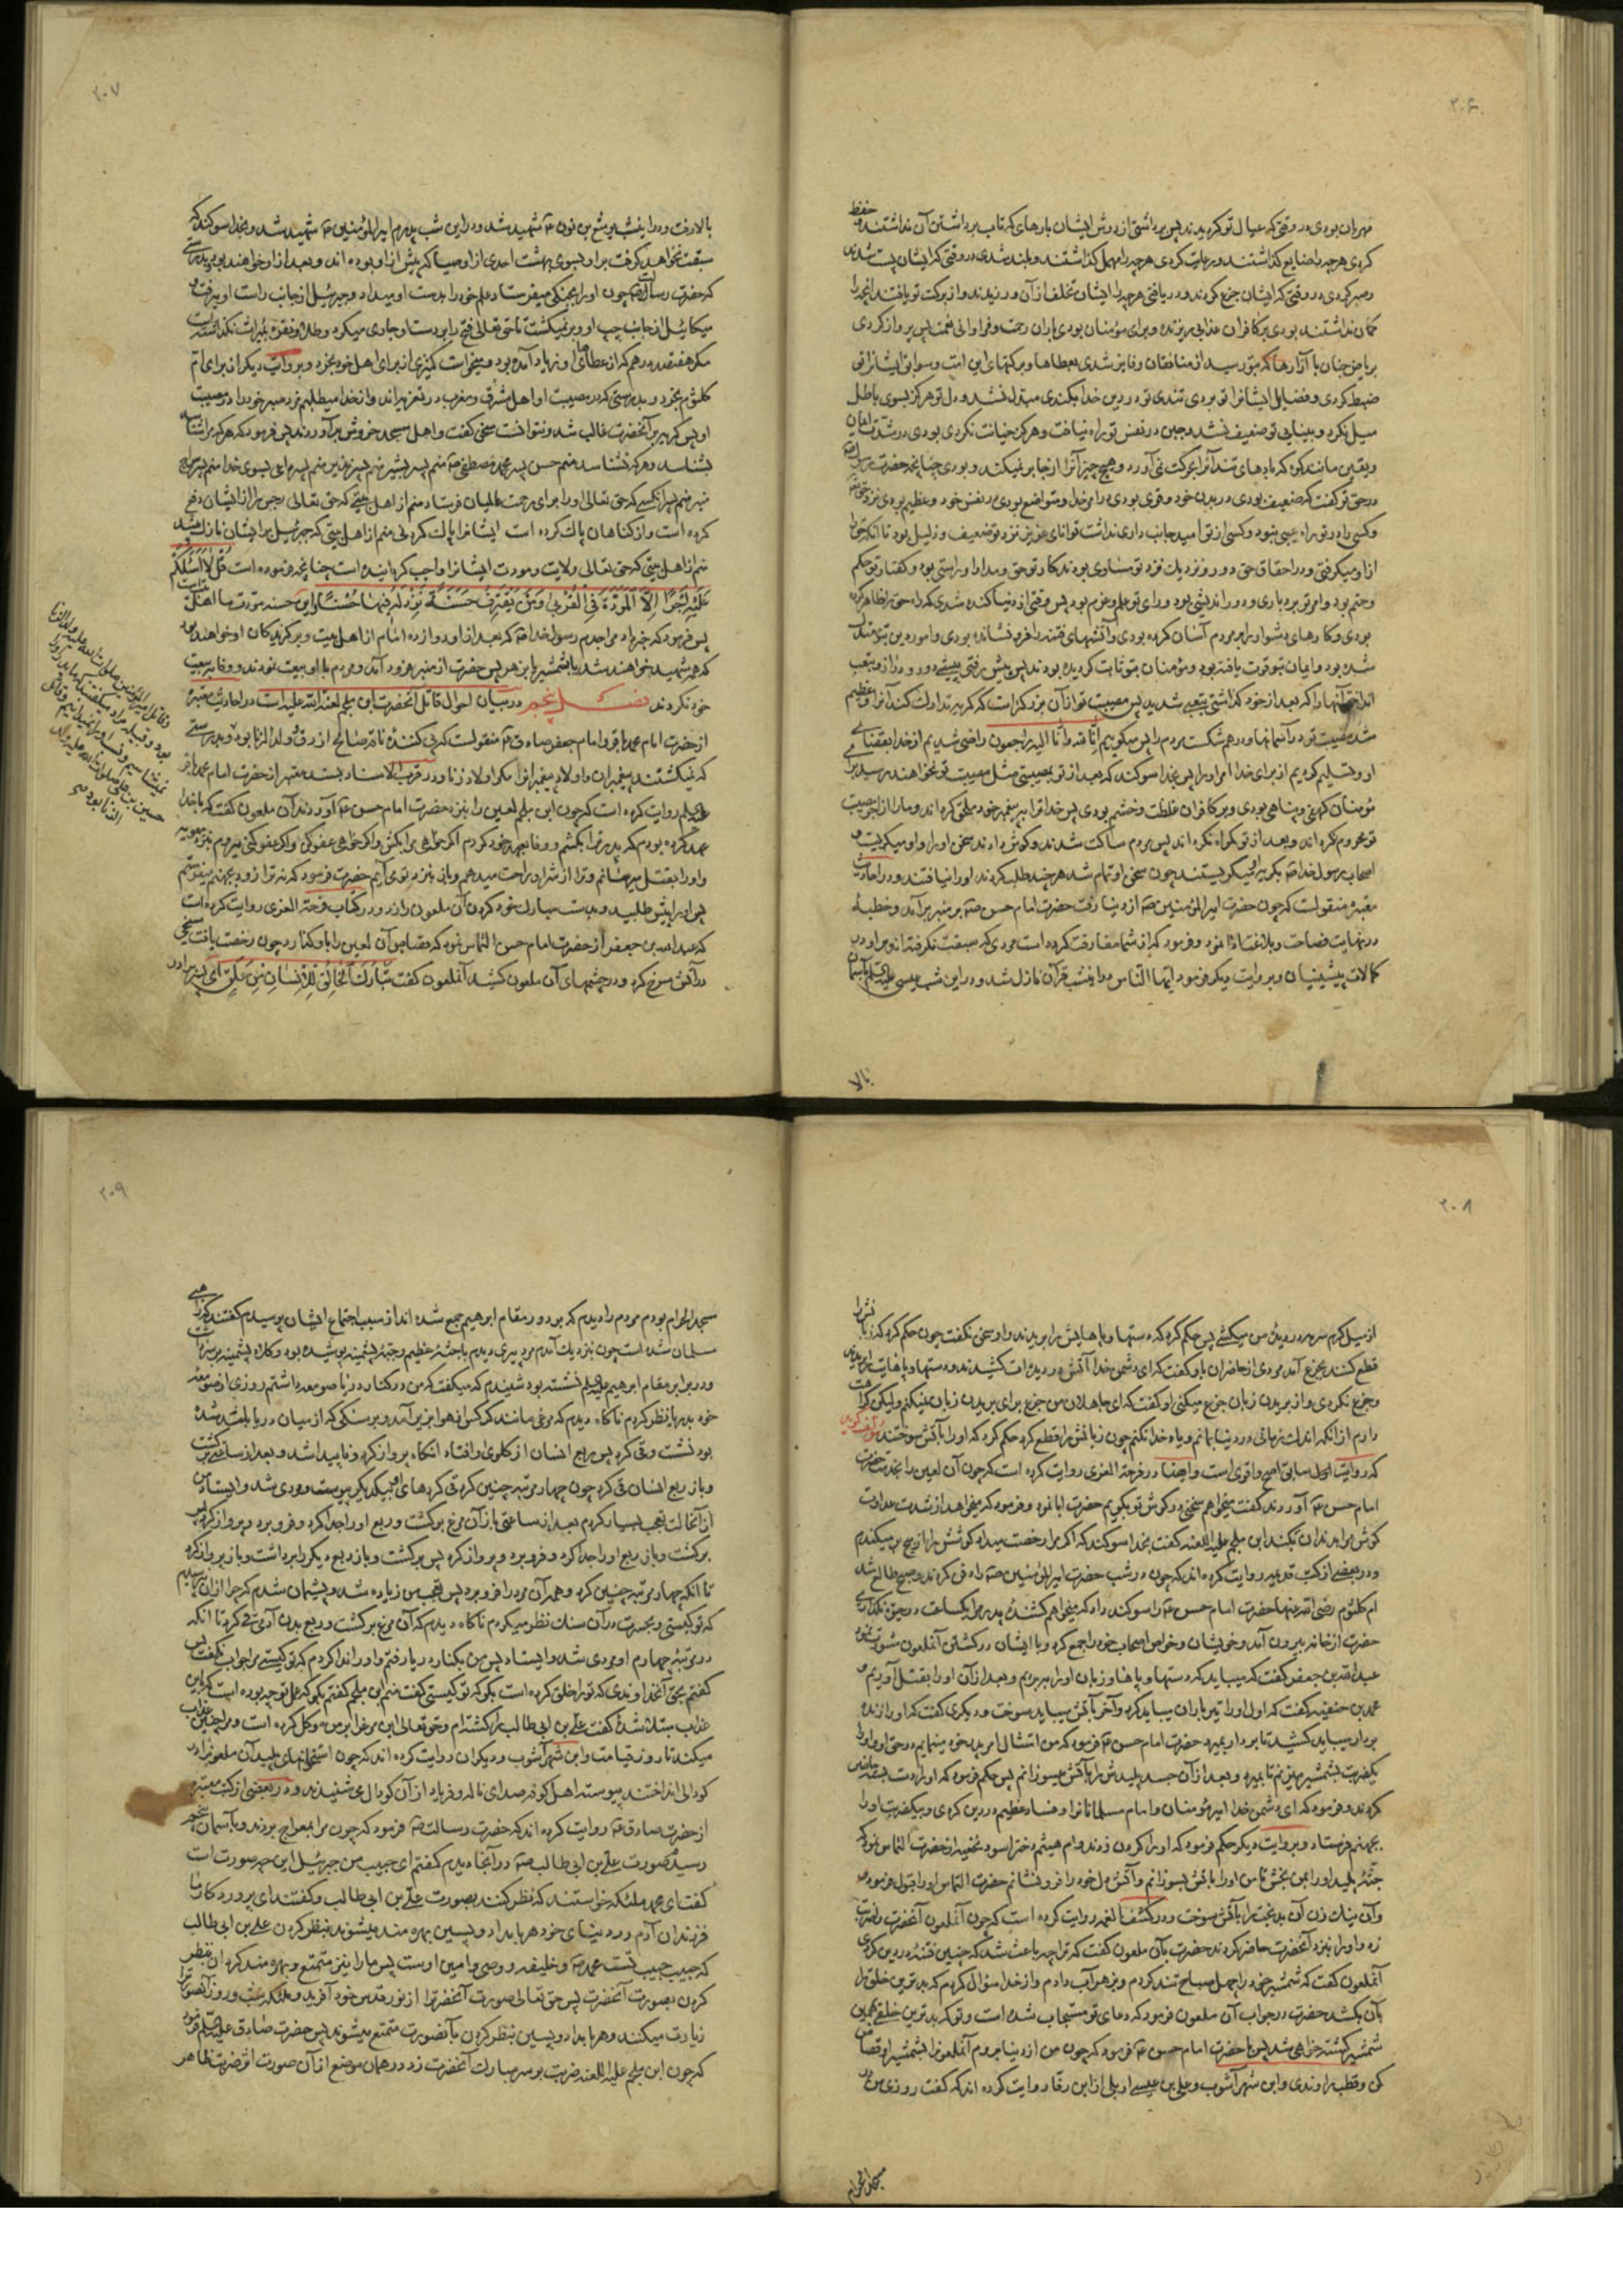 ۲۰۶
مهربان بودی در وقتی که عیال تو کردیدند پس برداشتی از دوش ایشان بارهای که تاب برداشتن آن نداشتند و حفظ
کردی هرچه را ضایع کذاشتند و رعایت کردی هرچه را مهمل کذاشتند و بلند شدی در وقتی که ایشان پست شدند
و صبر کردی در وقتی که ایشان جزع کردند و دریافتی هرچه را ایشان تخلف از آن ورزیدند و از برکت تو یافتند آنچه را
کمان نداشتند بودی بر کافران عذابی ریزنده و برای مؤمنان بودی باران رحمت و فراوانی نعمت پس پرواز کردی
ضبط کردی و فضایل ایشانرا تو بردی تندی تو در دین خدا بکندی مبدل نشد و دل تو هرکز بسوی باطل
میل نکرد و بینایی تو ضعیف نشد و جبن در نفس تو راه نیافت و هرکز خیانت نکردی بودی در شدت ایمان
و یقین مانند کوه که بادهای تند آنرا بحرکت نمی آورد و هیچ چیز آنرا از جا بر نمیکند و بودی چنانچه حضرت رسول ص
در حق تو کفت که ضعیف بودی در بدن خود و قوی بودی در امر خدا و متواضع بودی در نفس خود و عظیم بودی نزد حق تعالی
ازاو میکرفتی و در احقاق حق دور و نزدیک نزد تو مساوی بودند کار تو حق و مدارا و راستی بود و کفتار تو حکم
و حتم بود و امر تو بردباری و دور اندیشی بود و رای تو علم و عزم بود پس وقتی از دنیا کنده شدی که راه حق را ظاهر کرده
بودی و کارهای دشوار را بر مردم آسان کرده بودی و آتشهای فتنه را فرو نشانده بودی و امور دین بتو معتدل
شده بود و ایمان بتو قوت یافته بود و مؤمنان بتو ثابت کردیده بودند پس پیش رفتی پیشی دور و دراز و بتعب
انداختی آنها را که بعد از خود کذاشتی بتعبی شدید پس مصیبت تو از آن بزرکتر است که کریه تدارک کند آنرا و عظیم
شد مصیبت تو در آسمانها و درهم شکست مردم را پس میکوییم اِنّا لله واِنّا الیه راجعون راضی شدیم از خدا بقضای
او و تسلیم کردیم از برای خدا امر او را پس بخدا سوکند که بعد از تو بمصیبتی مثل مصیبت تو نخواهند رسید برای
مؤمنان کهفی و پناهی بودی و بر کافران غلظت و خشم بودی پس خدا ترا به پیغمبر خود ملحق کرداند و ما را از اجر مصیبت
تو محروم نکرداند و بعد از تو کمراه نکرداند پس مردم ساکت شدند و کوش دادند سخن او را و او میکریست و
اصحاب رسول خدا ص بکریه او میکریستند چون سخن او تمام شد هرچند طلب کردند او را نیافتند و در احادیث
معتبره منقولست که چون حضرت امیر المؤمنین ص از دنیا رفت حضرت امام حسن ص بر منبر برآمد و خطبه
در نهایت فصاحت و بلاغت ادا نمود و فرمود که از شما مفارقت کرده است مردی که سبقت نکرفته اند بر او در
کمالات پیشینیان و بروایت دیکر فرمود ایها الناس در این شب قرآن نازل شد و در این شب عیسی علیه السلام بآسمان
بالا
۲۰۷
بالا رفت و در این شب یوشع بن نون ع شهید شد و در این شب پدرم امیر المؤمنین ع شهید شد و بخدا سوکند که
سبقت نخواهد کرفت بر او بسوی بهشت احدی از اوصیا که پیش از او بوده اند و بعد از او خواهند بود و بدرستی
که حضرت رسالت ص چون او را بجنکی میفرستاد علم خود را بدست او میداد و جبرئیل از جانب راست او میرفت و
میکائیل از جانب چپ او و بر نمیکشت تا حق تعالی فتح را بر دست او جاری میکرد و طلا و نقره بمیراث نکذاشته است
مکر هفتصد درهم که از عطاهای او زیاد آمده بود و میخواست کنیزی از برای اهل خود بخرد و بروایت دیکر از برای ام
کلثوم بخرد و بدرستی که در مصیبت او اهل مشرق و مغرب در تعزیه اند و از خدا میطلبم مزد صبر خود را در مصیبت
او پس کریه بر آنحضرت غالب شد و نتوانست سخن کفت و اهل مسجد خروش برآوردند پس فرمود که هر که مرا شناسد
بشناسد و هر که نشناسد منم حسن پسر محمد مصطفی ص منم پسر بشیر منم پسر نذیر منم پسر داعی بسوی خدا منم پسر سراج
منیر منم پسر آنکسی که حق تعالی او را برای رحمت عالمیان فرستاد منم از اهل بیتی که حق تعالی رجس را از ایشان دفع
کرده است و از کناهان پاک کرده است ایشانرا پاک کردنی منم از اهل بیتی که جبرئیل بر ایشان نازل میشد
منم از اهل بیتی که حق تعالی ولایت و مودت ایشانرا واجب کردانیده است چنانچه فرموده است قُل لا اَسئَلُکُم
عَلَیهِ اَجرًا اِلاَّ المَوَدَّةَ فِی القُربی وَمَن یَقتَرِف حَسَنَةً نَزِد لَهُ فیها حُسنًا و این حسنه مودت ما اهل بیت است
پس فرمود که خبر داد مرا جدم رسول خدا ص که بعد از او دوازده امام از اهل بیت و برکزیدکان او خواهند بود
که همه شهید خواهند شد یا بشمشیر یا بزهر پس حضرت از منبر فرود آمد و مردم با او بیعت نمودند و وفا به بیعت
خود نکردند فصل پنجم در بیان احوال قاتل آنحضرت ابن ملجم لعنة الله علیه است در احادیث معتبره
از حضرت امام محمد باقر و امام جعفر صادق ع منقولست که پی کننده ناقه صالح ازرق ولد الزنا بود و بدرستی
که نمیکشتند پیغمبران و اولاد پیغمبرانرا مکر اولاد زنا و در قرب الاسناد بسند معتبر از حضرت امام محمد باقر
علیه السلام روایت کرده است که چون ابن ملجم لعین را بنزد حضرت امام حسن ع آوردند آن ملعون کفت که با خدا
عهد کرده بودم که پدر ترا بکشم و وفا بعهد خود کردم اکر خواهی مرا بکش و اکر خواهی عفو کن و اکر عفو کنی میروم بنزد معویه
و او را بقتل میرسانم و ترا از شر او راحت میدهم و باز بنزد تو می آیم حضرت فرمود که نه ترا زود بجهنم میفرستم
پس او را پیش طلبید و بدست مبارک خود کردن آن ملعون را زد و در کتاب فرحة الغری روایت کرده است
که عبدالله بن جعفر از حضرت امام حسن التماس نمود که قصاص آن لعین را باو کذارد چون رخصت یافت میخی
در آتش سرخ کرد و در چشمهای آن ملعون کشید آنملعون کفت تَبارَکَ الخالِقُ لِلاِنسانِ مِن عَلَقٍ ای پسر برادر
۲۰۸
قطع کنند بجزع آمد مردی از حاضران باو کفت که ای دشمن خدا آتش در دیده ات کشیدند و دستها و پاهایت را بریدند
و جزع نکردی و از بریدن زبان جزع میکنی او کفت که ای جاهلان من جزع برای بریدن زبان نمیکنم ولیکن کراهت
دارم از آنکه اندک زمانی در دنیا بمانم و یاد خدا نکنم چون زبانش را قطع کرد حکم کرد که او را بآتش سوختند
که روایت اول سابق اصح و اقوی است و ایضا در فرحة الغری روایت کرده است که چون آن لعین را بخدمت حضرت
امام حسن ع آوردند کفت میخواهم سخنی در کوش تو بکویم حضرت ابا نمود و فرمود که میخواهد از شدت عداوت
کوش مرا بدندان بکند ابن ملجم علیه اللعنه کفت بخدا سوکند که اکر مرا رخصت میداد کوشش را از بیخ بر میکندم
و در بعضی از کتب قدیمه روایت کرده اند که چون در شب حضرت امیر المؤمنین ص را دفن کردند و صبح طالع شد
ام کلثوم رضی الله عنها حضرت امام حسن ع را سوکند داد که میخواهم کشنده پدر مرا یکساعت در حیوة نکذاری
حضرت از خانه بیرون آمد و خویشان و خواص اصحاب خود را جمع کرد و با ایشان در کشتن آنملعون مشورت نمود
عبدالله بن جعفر کفت که میباید که دستها و پاها و زبان او را ببریم و بعد از آن او را بقتل آوریم و
محمد بن حنفیه کفت که اول او را تیرباران میباید کرد و آخر بآتش میباید سوخت و دیکری کفت که او را زنده
بر دار میباید کشید تا بر دار بمیرد حضرت امام حسن ع فرمود که من امتثال امر پدر خود مینمایم در حق او و او را
یکضربت بشمشیر میزنم تا بمیرد و بعد از آن جسد پلیدش را بآتش میسوزانم پس حکم فرمود که او را دست بسته حاضر
کردند و فرمود که ای دشمن خدا امیر مؤمنان و امام مسلمانانرا و فساد عظیم در دین کردی و بیکضربت او را
بجهنم فرستاد و بروایت دیکر حکم فرمود که او را کردن زدند و ام هیثم دختر اسود نخعیه از حضرت التماس نمود که
جثه پلید او را بمن بخش تا من او را بآتش بسوزانم و آتش دل خود را فرو نشانم حضرت التماس او را قبول فرمود
و آن نیک زن آن بدبخت را بآتش سوخت و در کشف الغمه روایت کرده است که چون آنملعون آنحضرت را ضربت
زد و او را بنزد آنحضرت حاضر کردند حضرت بآن ملعون کفت که ترا چه باعث شد که چنین فتنه در دین کردی
آنملعون کفت که شمشیر خود را چهل صباح تند کردم و بزهر آب دادم و از خدا سؤال کردم که بدترین خلق را
بآن بکشد حضرت در جواب آن ملعون فرمود که دعای تو مستجاب شده است و تو که بدترین خلقی بهمین
شمشیر کشته خواهی شد پس با حضرت امام حسن ع فرمود که چون من از دنیا بروم آنملعونرا بشمشیر او قصاص
کن و قطب راوندی و ابن شهرآشوب و علی بن عیسی اربلی از ابن رقا روایت کرده اند که کفت روزی من در
مسجد الحرام
۲۰۹
مسجد الحرام بودم مردم را دیدم که بر دور مقام ابرهیم جمع شده اند از سبب اجتماع ایشان پرسیدم کفتند که راهبی
مسلمان شده است چون نزدیک آمدم مرد پیری دیدم با جثه عظیم و جبه پشمینه پوشیده بود و کلاه پشمینه بر سر داشت
و در برابر مقام ابرهیم علیه السلام نشسته بود شنیدم که میکفت که من در کنار دریا صومعه داشتم روزی از صومعه
خود بدریا نظر کردم ناکاه دیدم که مرغی مانند کرکس از هوا بزیر آمد و بر سنکی که از میان دریا بلند شده
بود نشست و قی کرد پس ربع انسان از کلوی او افتاد آنکاه پرواز کرد و ناپیدا شد و بعد از ساعتی برکشت
و باز ربع انسان قی کرد چون چهار مرتبه چنین کرد قی کردهای او بیکدیکر پیوست و مردی شد و ایستاد من
از آنحالت تعجب بسیار کردم بعد از ساعتی باز آن مرغ برکشت و ربع او را جدا کرد و فرو برد و پرواز کرد پس
برکشت و باز ربع او را جدا کرد و فرو برد و پرواز کرد پس برکشت و باز ربع دیکر را برداشت و باز پرواز کرد
تا آنکه چهار مرتبه چنین کرد و همه آن مرد را فرو برد پس تعجب من زیاده شد و پشیمان شدم که چرا از آن نپرسیدم
که تو کیستی و بحسرت در آن سنک نظر میکردم ناکاه دیدم که آن مرغ برکشت و ربع بدن آدمی قی کرد تا آنکه
در مرتبه چهارم او مردی شد و ایستاد پس من بکنار دریا رفتم و او را ندا کردم که تو کیستی مرا جواب نکفت پس
کفتم بحق آنخداوندی که ترا خلق کرده است بکو که تو کیستی کفت منم ابن ملجم کفتم بکو که عمل تو چه بوده است که باین
عذاب مبتلا شدۀ کفت علی بن ابی طالب را کشته ام و حق تعالی این مرغ را بر من موکل کرده است و مرا چنین عذاب
میکند تا روز قیامت و ابن شهرآشوب و دیکران روایت کرده اند که چون استخوانهای پلید آن ملعونرا در
کودالی انداختند پیوسته اهل کوفه صدای ناله و فریاد از آن کودال می شنیدند و در بعضی از کتب معتبره
از حضرت صادق ع روایت کرده اند که حضرت رسالت ص فرمود که چون مرا بمعراج بردند و بآسمان پنجم
رسیدم صورت علی بن ابی طالب ص در آنجا دیدم کفتم ای حبیب من جبرئیل این چه صورت است
کفت ای محمد ملئکه خواستند که نظر کنند بصورت علی بن ابی طالب و کفتند ای پروردکار ما
فرزندان آدم در دنیای خود هر بامداد و پسین بهره مند میشوند بنظر کردن علی بن ابی طالب
که حبیب حبیب تست محمد ص و خلیفه و وصی و امین اوست پس ما را نیز متمتع و بهره مند کردان بنظر
کردن بصورت آنحضرت پس حق تعالی صورت آنحضرترا از نور قدس خود آفرید و ملئکه شب و روز آنصورترا
زیارت میکنند و هر بامداد و پسین بنظر کردن بآنصورت متمتع میشوند پس حضرت صادق علیه السلام فرمود
که چون ابن ملجم علیه اللعنه ضربت بر سر مبارک آنحضرت زد در همان موضع از آن صورت اثر ضربت ظاهر